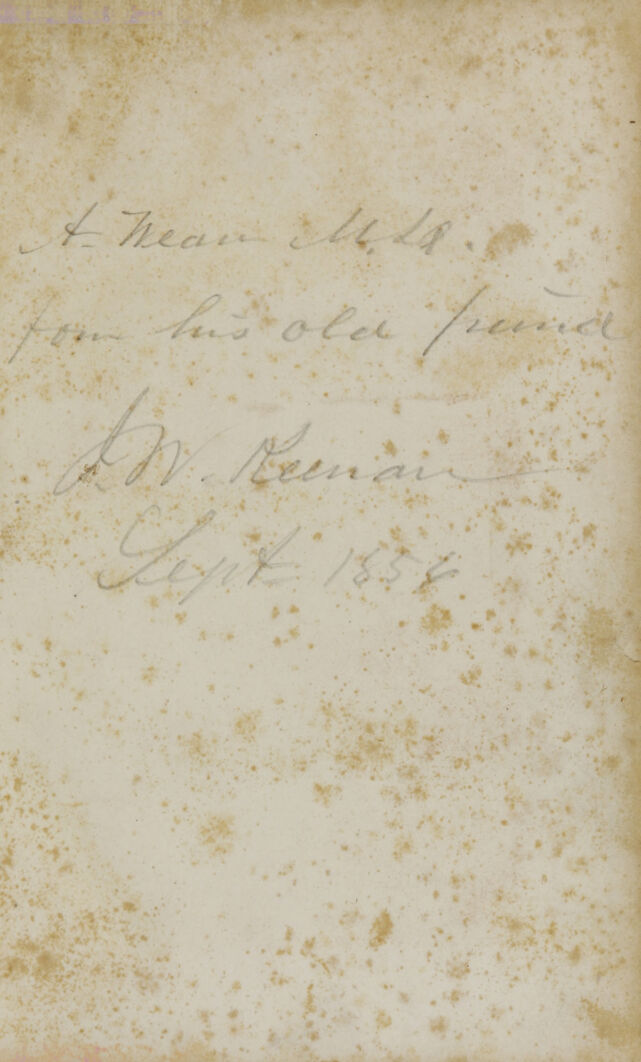 A- Mean M.D.
from his old friend
J. W. Keenan
Sept 1856